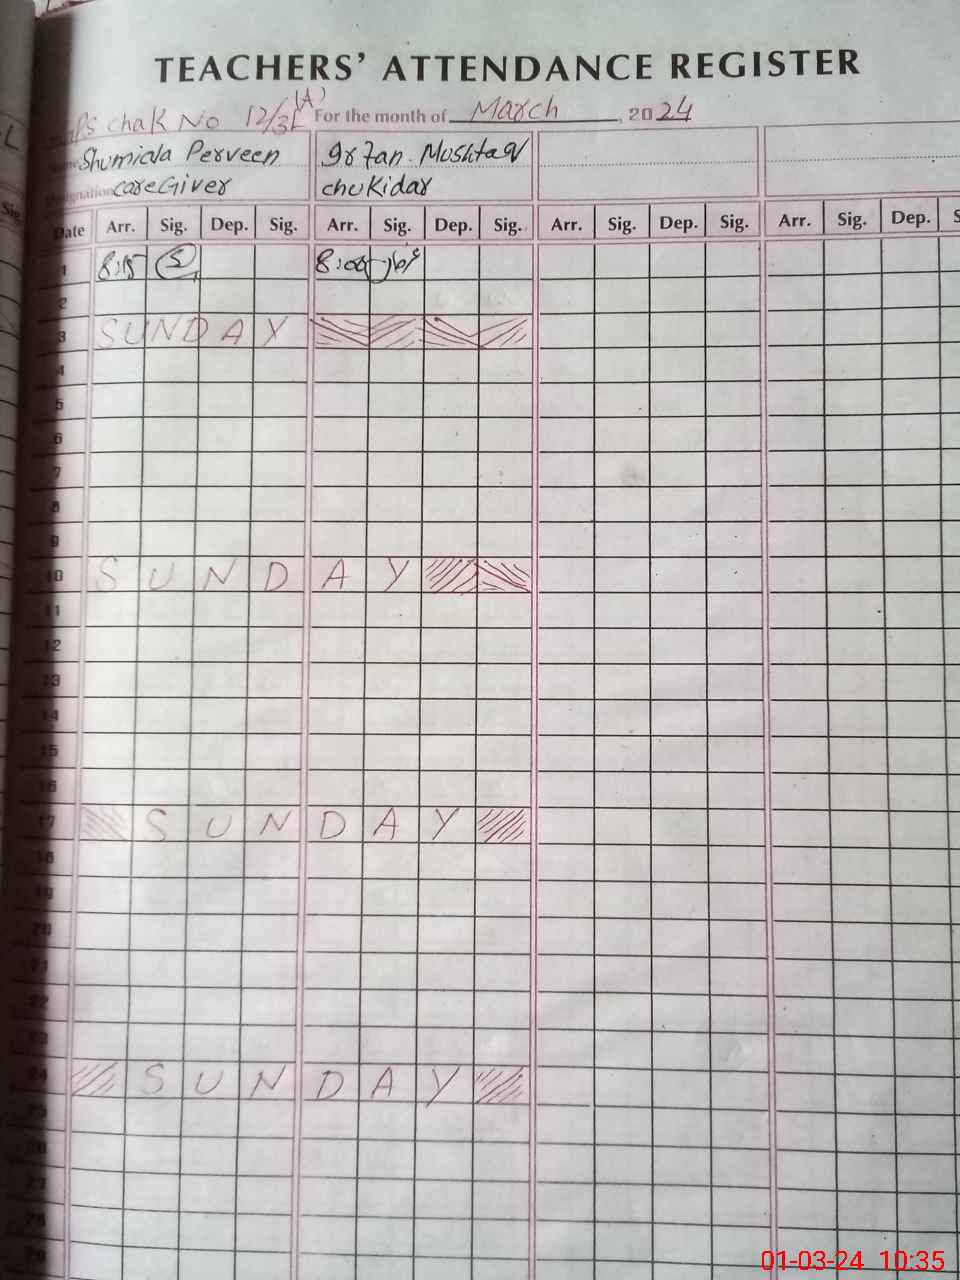 TEACHERS' ATTENDANCE REGISTER
chak No 12/3L (A) For the month of March, 2024
Shumiala Perveen Mushtaq
Designation careGiver chukidar
Date Arr. Sig. Dep. Sig. Arr. Sig. Dep. Sig. Arr. Sig. Dep. Sig. Arr. Sig. Dep. S
1 8:15 8:00
2
3 SUNDAY
4
5
6
7
8
9
10 SUNDAY
11
12
13
14
15
16
17 SUNDAY
18
19
20
21
22
23
24 SUNDAY
25
26
27
28
29
01-03-24 10:35